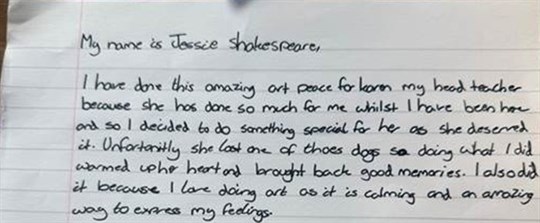 My name is Jessie Shakespeare,
I have done this amazing art peace for karen my head teacher
because she has done so much for me whilst I have been here
and so I decided to do something special for her as she deserved
it. Unfortanitly she lost one of thoes dogs so doing what I did
warmed up her heart and brought back good memories. I also did
it because I love doing art as it is calming and an amazing
way to express my feelings.